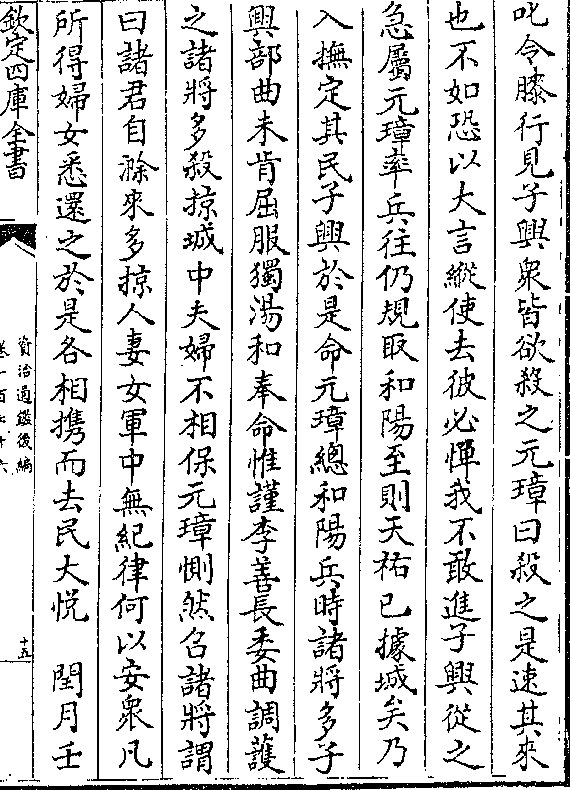 叱令膝行見子興衆皆欲殺之元璋曰殺之是速其來
也不如恐以大言縱使去彼必憚我不敢進子興從之
急屬元璋率兵往仍規取和陽至則天祐已據城矣乃
入撫定其民子興於是命元璋總和陽兵時諸將多子
興部曲未肯屈服獨湯和奉命惟謹李善長委曲調護
之諸將多殺掠城中夫婦不相保元璋惻然召諸將謂
曰諸君自滁來多掠人妻女軍中無紀律何以安衆凡
所得婦女悉還之於是各相攜而去民大悅　閏月壬
欽定四庫全書
資治通鑑後編
卷一百七十六
十五